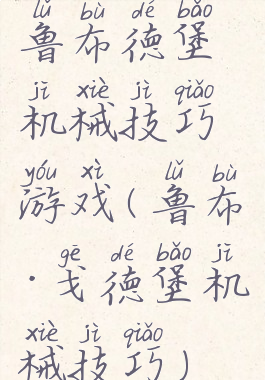 lǔ bù dé bǎo
鲁布德堡
jī xiè jì qiǎo
机械技巧
yóu xì lǔ bù
游戏(鲁布
gē dé bǎo jī
·戈德堡机
xiè jì qiǎo
械技巧)